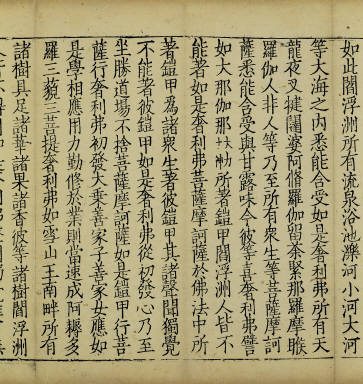 如此閻浮洲所有流泉浴池濼河小河大河
等大海之內悉能含受如是奢利弗所有天
龍夜叉揵闥婆阿脩羅伽留茶緊那羅摩睺
羅伽人非人等乃至所有衆生等菩薩摩訶
薩悉能含受與甘露味令彼等喜奢利弗譬
如大那伽那所著鎧甲閻浮洲人皆不
能著如是奢利弗菩薩摩訶薩於佛法中所
著鎧甲爲諸衆生著彼鎧甲其諸聲聞獨覺
不能著彼鎧甲如是奢利弗從初發心乃至
坐勝道場不捨菩薩摩訶薩如是鎧甲行菩
薩行奢利弗初發大乘善家子善家女應如
是學相應用力勤修於業則當速成阿耨多
羅三藐三菩提奢利弗如雪山王南畔所有
諸樹具足諸華諸果諸香彼等諸樹閻浮洲